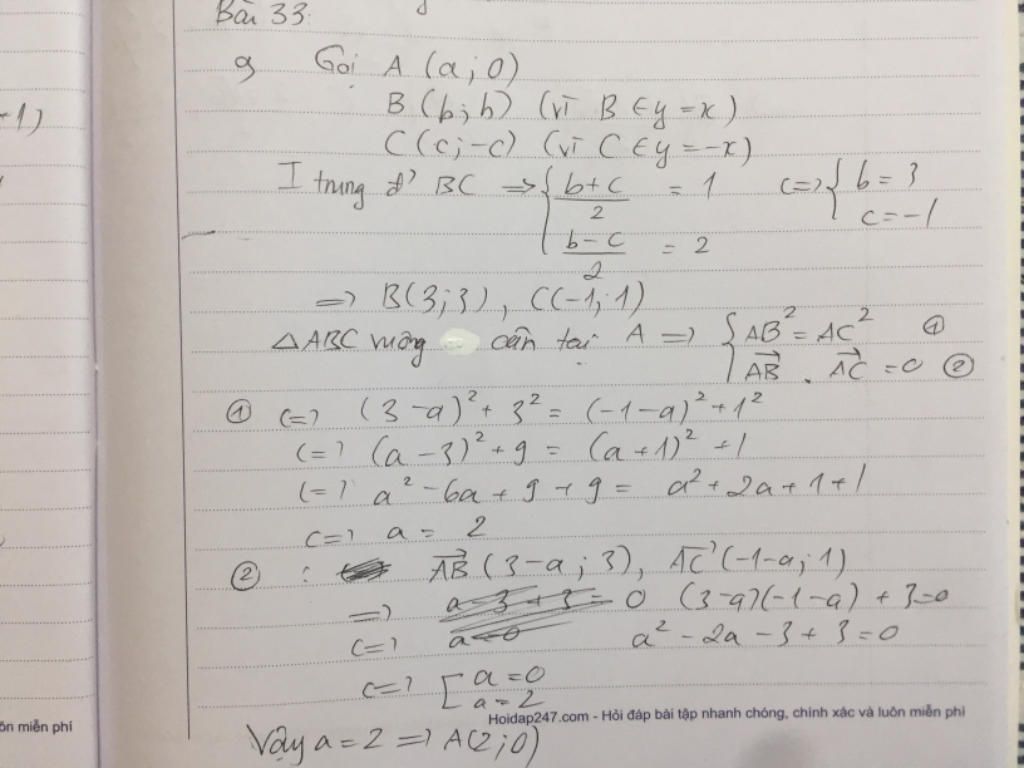 -1)
Bài 33:
a) Gọi A (a; 0)
B (b; b) (vì B ∈ y = x)
C (c; -c) (vì C ∈ y = -x)
I trung đ' BC => { (b+c)/2 = 1 <=> { b = 3
(b-c)/2 = 2 c = -1
=> B(3; 3), C(-1; 1)
△ABC vuông cân tại A => { AB² = AC² ①
AB→ . AC→ = 0 ②
① <=> (3-a)² + 3² = (-1-a)² + 1²
<=> (a-3)² + 9 = (a+1)² + 1
<=> a² - 6a + 9 + 9 = a² + 2a + 1 + 1
<=> a = 2
② : AB→ (3-a; 3), AC→ (-1-a; 1)
=> a-3+3 = 0 (3-a)(-1-a) + 3 = 0
<=> a=0 a² - 2a - 3 + 3 = 0
<=> [ a = 0
a = 2
Hoidap247.com - Hỏi đáp bài tập nhanh chóng, chính xác và luôn miễn phí
ôn miễn phí
Vậy a = 2 => A(2; 0)